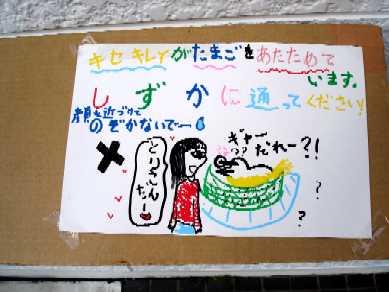 キセキレイがたまごをあたためて
います。
しずかに通ってください!
顔を近づけて
のぞかないで〜
とりちゃん
だー
ギャー
だれー?!
?
?